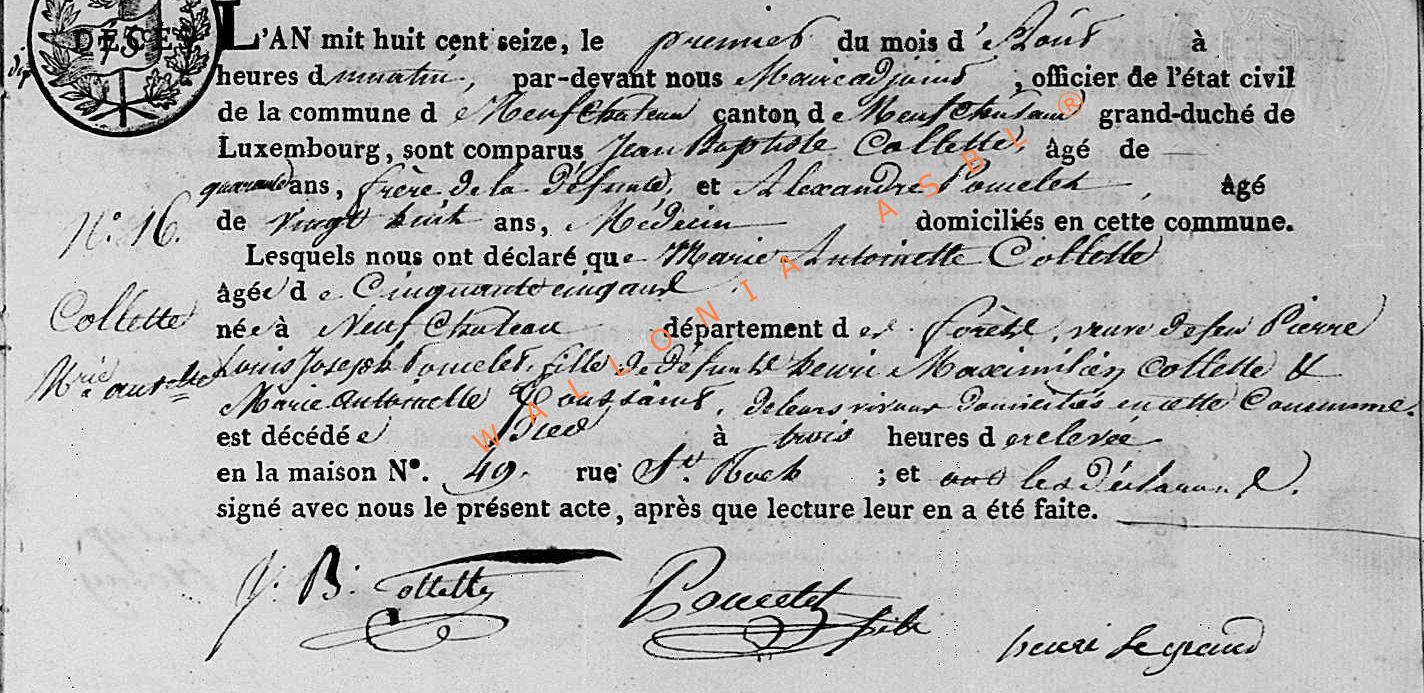 DÉCÈS
L'AN mit huit cent seize, le premier du mois d'Aout à
heures du matin, par-devant nous Maire adjoint, officier de l'état civil
de la commune de Neufchateau canton de Neufchateau grand-duché de
Luxembourg, sont comparus Jean Baptiste Collette, âgé de
quarante ans, frère de la défunte, et Alexandre Poncelet, âgé
de vingt huit ans, Médecin domiciliés en cette commune.
N°. 16.
Lesquels nous ont déclaré que Marie Antoinette Collette
âgée de Cinquante cinq ans
Collette
née à Neufchateau département des forêts, veuve de feu Pierre
Mrie antte
Louis Joseph Poncelet, fille de défunts henri Maximilien Collette &
Marie antoinette Toussaint, de leurs vivans domiciliés en cette Commune.
est décédée à trois heures de relevée
en la maison N°. 49. rue St. Roch ; et ont les déclarans
signé avec nous le présent acte, après que lecture leur en a été faite.
J. B. Collette
Poncelet
henri Legrand
WALLONIA ASBL ®